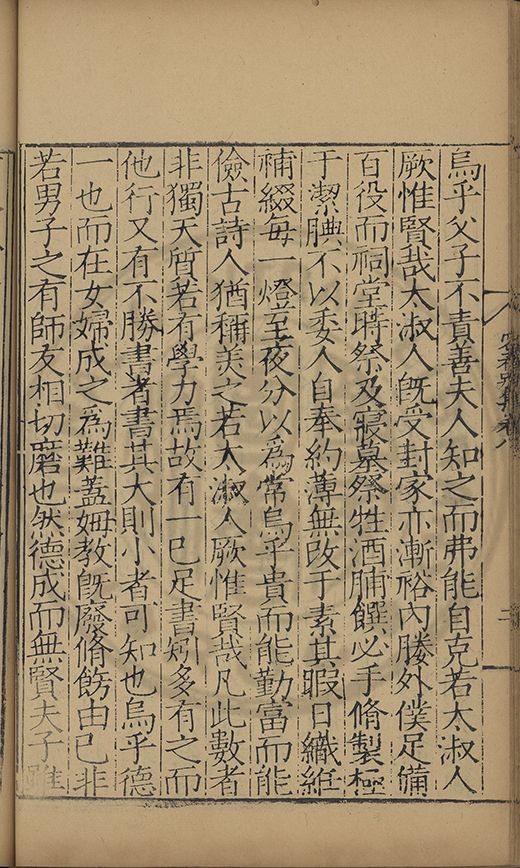 烏乎父子不責善夫人知之而弗能自克若太淑人
厥惟賢哉太淑人旣受封家亦漸裕內媵外僕足備
百役而祠堂時祭及寢墓祭牲酒脯饌必手脩製極
于潔腆不以委人自奉約薄無改于素其暇日織絍
補綴每一燈至夜分以爲常烏乎貴而能勤富而能
儉古詩人猶稱美之若太淑人厥惟賢哉凡此數者
非獨天質若有學力焉故有一已足書矧多有之而
他行又有不勝書者書其大則小者可知也烏乎德
一也而在女婦成之爲難蓋姆敎旣廢脩飭由已非
若男子之有師友相切磨也然德成而無賢夫子雖